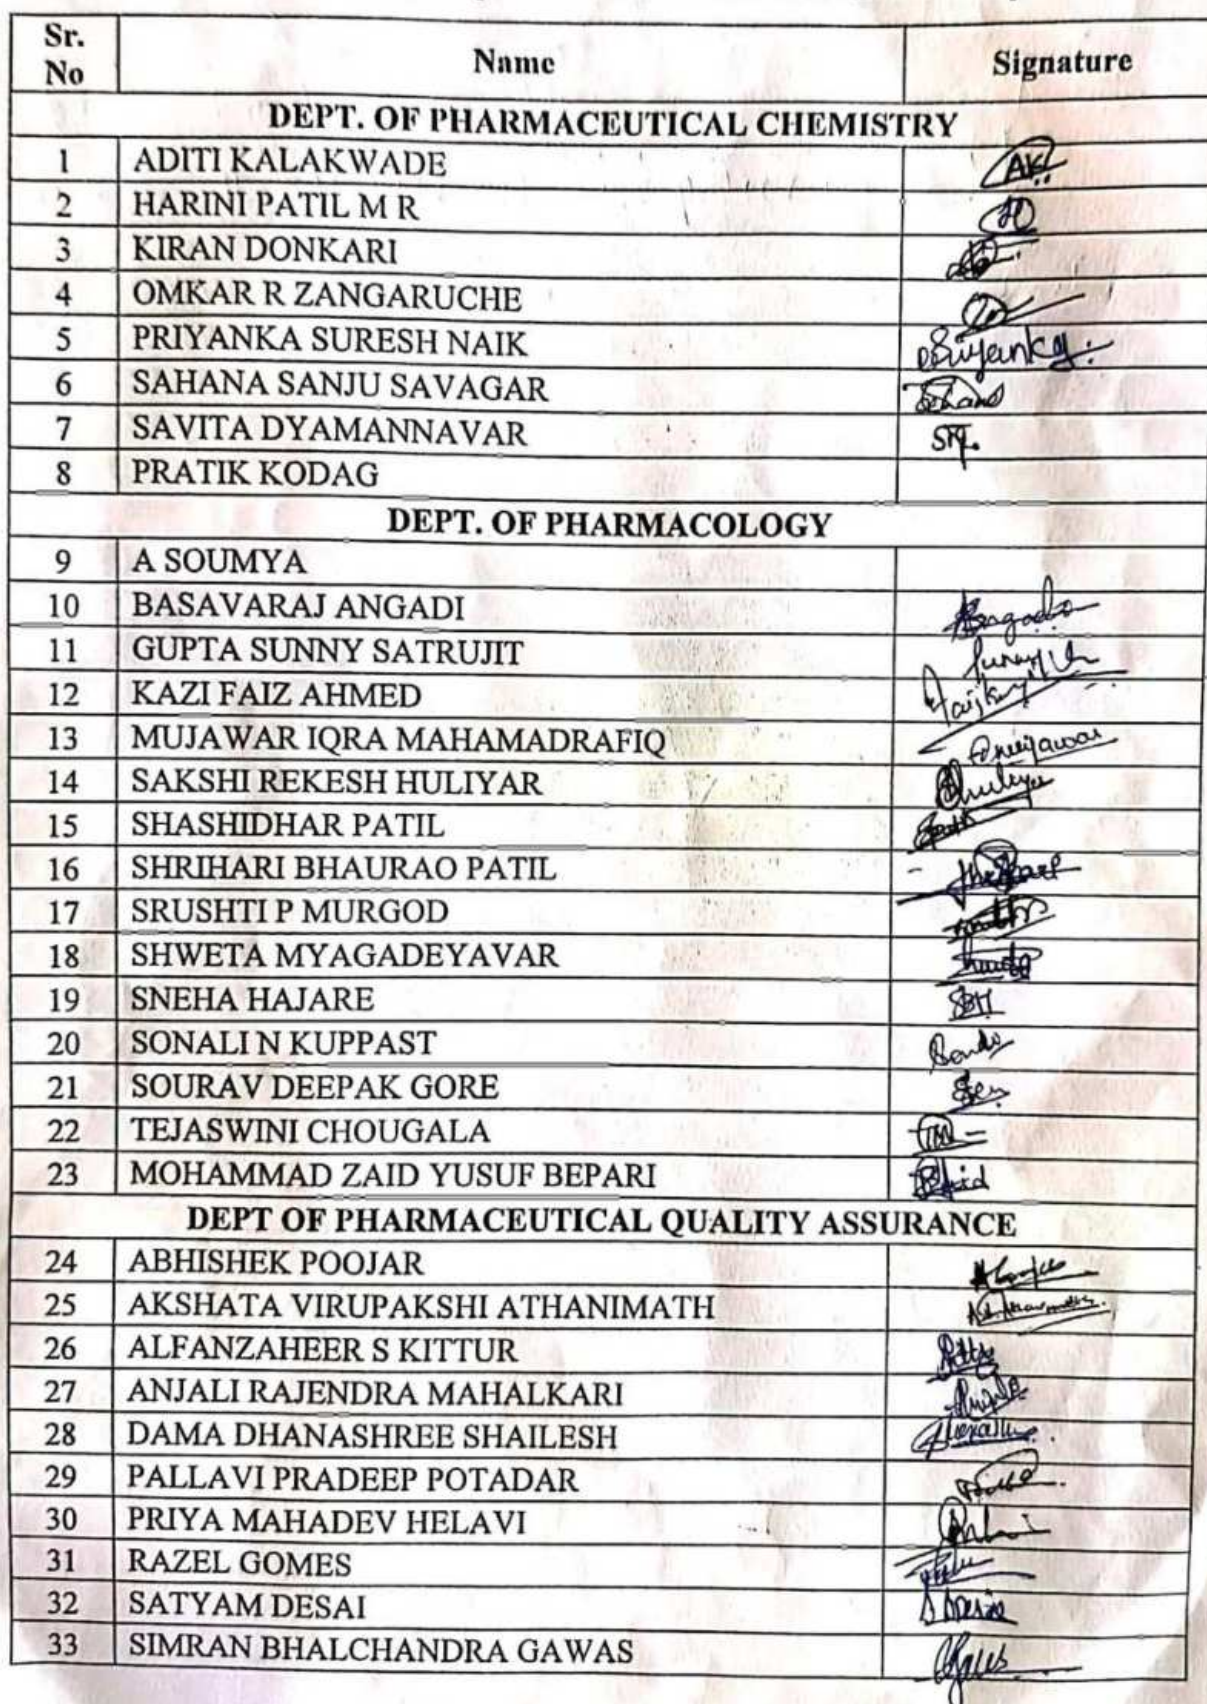 Sr. No Name Signature
DEPT. OF PHARMACEUTICAL CHEMISTRY
1 ADITI KALAKWADE AK
2 HARINI PATIL M R
3 KIRAN DONKARI
4 OMKAR R ZANGARUCHE
5 PRIYANKA SURESH NAIK
6 SAHANA SANJU SAVAGAR
7 SAVITA DYAMANNAVAR
8 PRATIK KODAG
DEPT. OF PHARMACOLOGY
9 A SOUMYA
10 BASAVARAJ ANGADI
11 GUPTA SUNNY SATRUJIT
12 KAZI FAIZ AHMED
13 MUJAWAR IQRA MAHAMADRAFIQ
14 SAKSHI REKESH HULIYAR
15 SHASHIDHAR PATIL
16 SHRIHARI BHAURAO PATIL
17 SRUSHTI P MURGOD
18 SHWETA MYAGADEYAVAR
19 SNEHA HAJARE SBH
20 SONALI N KUPPAST
21 SOURAV DEEPAK GORE
22 TEJASWINI CHOUGALA
23 MOHAMMAD ZAID YUSUF BEPARI
DEPT OF PHARMACEUTICAL QUALITY ASSURANCE
24 ABHISHEK POOJAR
25 AKSHATA VIRUPAKSHI ATHANIMATH
26 ALFANZAHEER S KITTUR
27 ANJALI RAJENDRA MAHALKARI
28 DAMA DHANASHREE SHAILESH
29 PALLAVI PRADEEP POTADAR
30 PRIYA MAHADEV HELAVI
31 RAZEL GOMES
32 SATYAM DESAI
33 SIMRAN BHALCHANDRA GAWAS